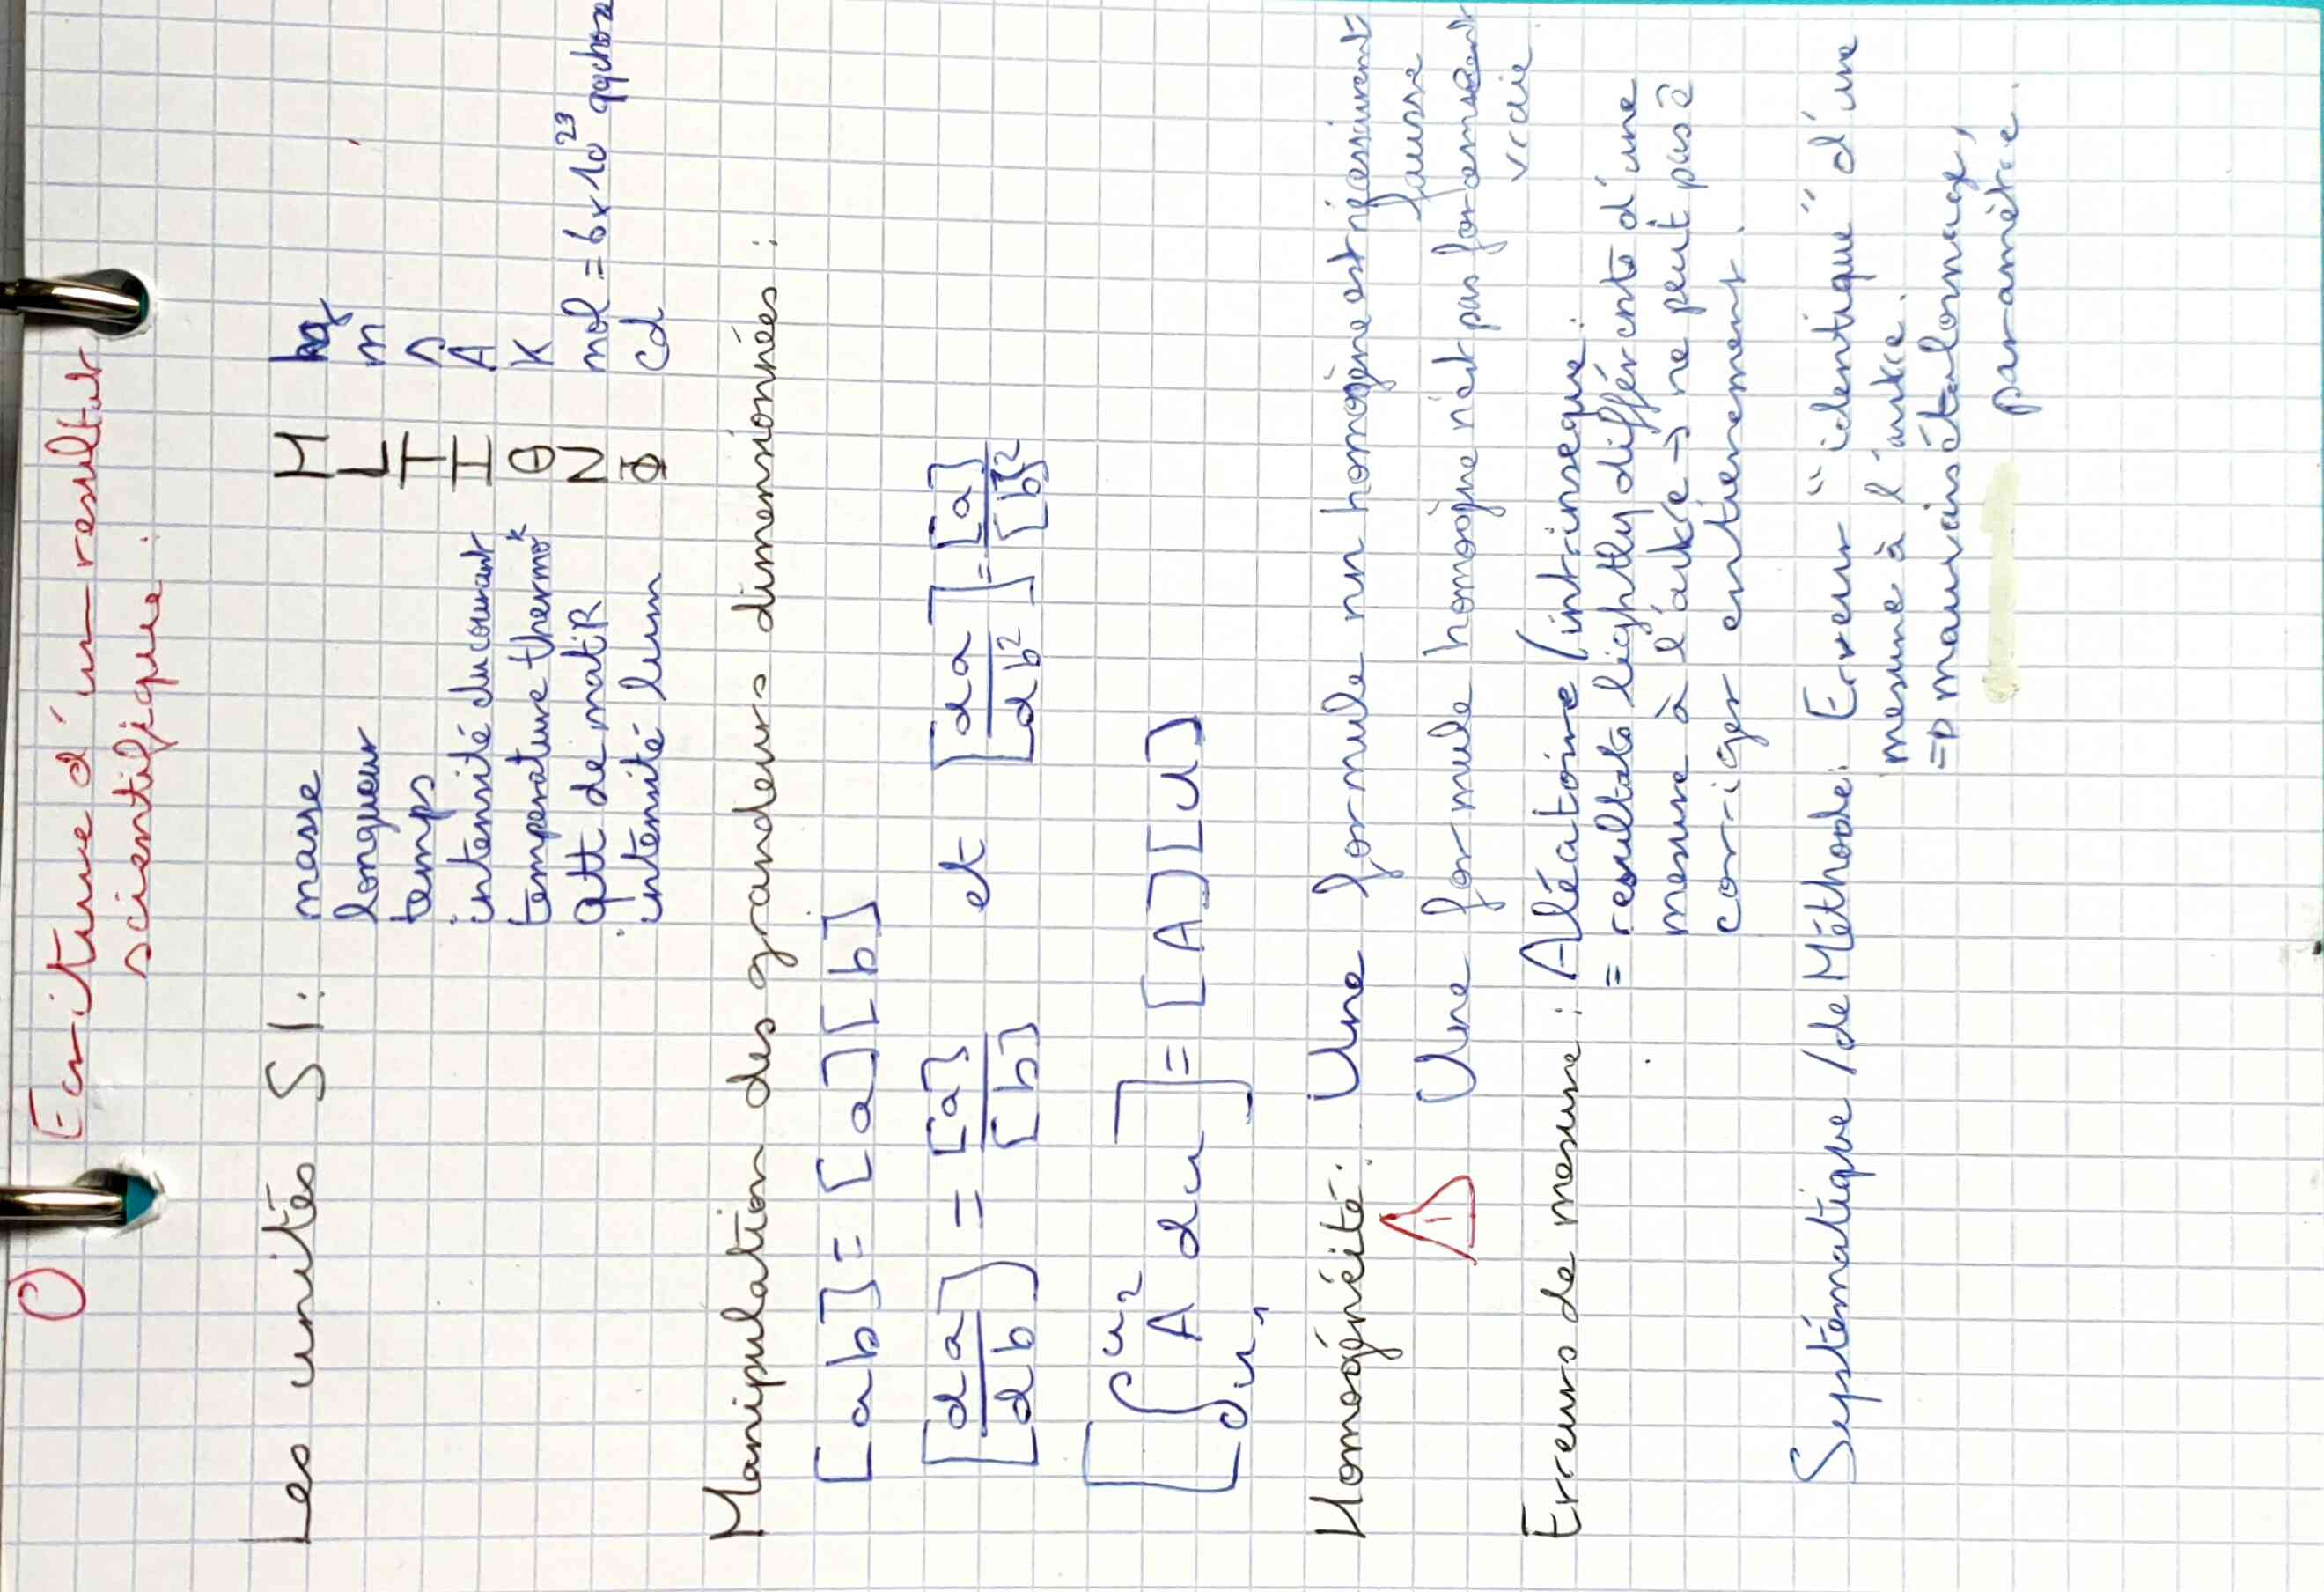 0) Ecriture d'un resultat
scientifique.
Les unités SI:
masse M kg
longueur L m
temps T s
intensité du courant I A
temperature thermo* Θ K
qtt de matiR N mol = 6 x 10^23 qqchose
intensité lum Φ cd
Manipulation des grandeurs dimensionnées:
[ab] = [a][b]
[da/db] = [a]/[b] et [da/db²] = [a]/[b]²
[∫_{u_1}^{u_2} A du] = [A][u]
Homogénéité: Une formule nn homogène est nécessairement
fausse
⚠ Une formule homogène n'est pas forcement
vraie
Erreurs de mesure: Aléatoire/intrinseque:
= resultats lightly différents d'une
mesure à l'autre → ne peut pas ê
corriger entierement.
Systématique/de Méthode: Erreur "identique" d'une
mesure à l'autre.
⇒ mauvais étalonnage,
paramètre.